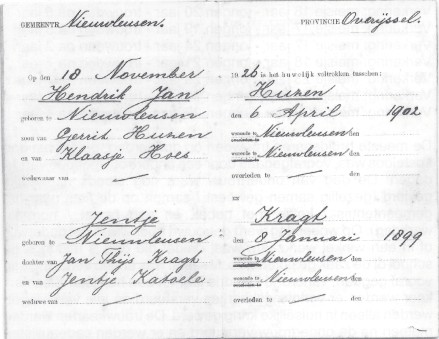 GEMEENTE Nieuwleusen. PROVINCIE Overijssel.
Op den 18 November 1926 is het huwelijk voltrokken tusschen:
Hendrik Jan Huzen
geboren te Nieuwleusen den 6 April 1902
zoon van Gerrit Huzen wonende te Nieuwleusen den
en van Klaasje Hoes wonende te Nieuwleusen den
weduwnaar van — overleden te — den
en
Jentje Kragt
geboren te Nieuwleusen den 8 Januari 1899
dochter van Jan Thijs Kragt wonende te Nieuwleusen den
en van Jentje Katoele wonende te Nieuwleusen den
weduwe van — overleden te — den